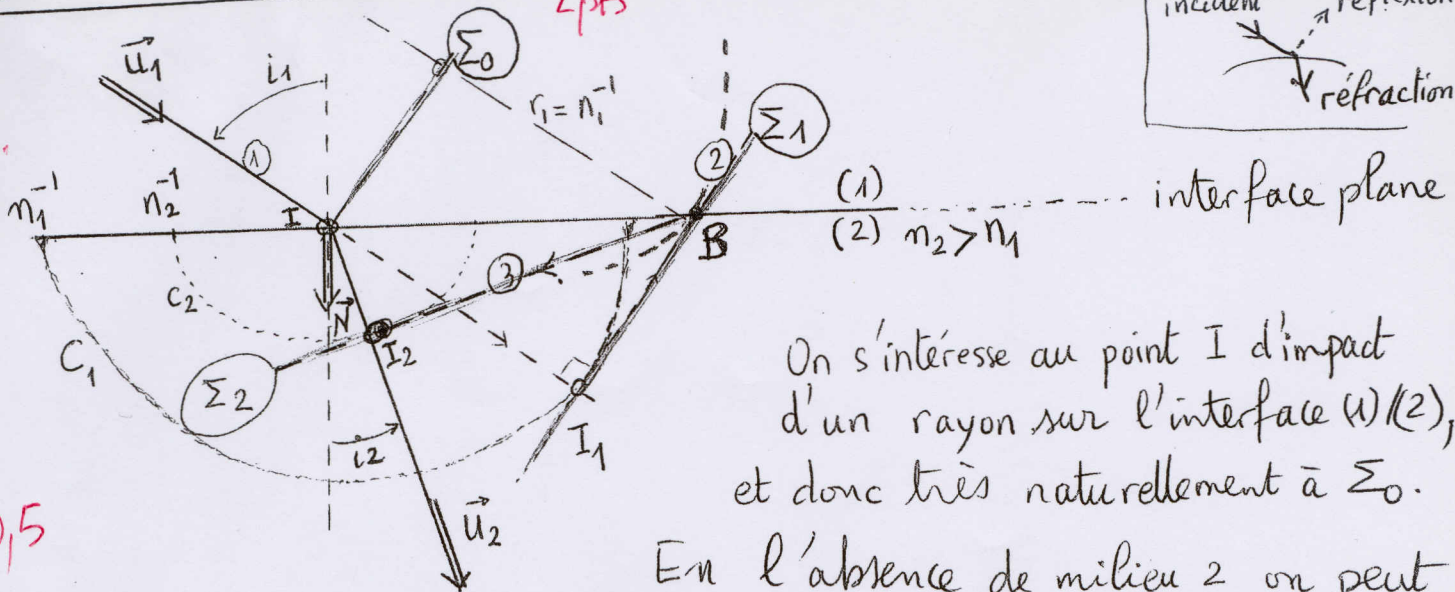 2pts
incident
réflexion
réfraction
u₁
i1
Σ₀
r₁ = n₁⁻¹
Σ1
①
②
n₁⁻¹
n₂⁻¹
I
(1)
interface plane
B
(2) n₂ > n₁
③
C₂
N
I₂
C₁
Σ2
I₁
i2
u₂
On s'intéresse au point I d'impact
d'un rayon sur l'interface (1)/(2),
et donc très naturellement à Σ₀.
,5
En l'absence de milieu 2 on peut